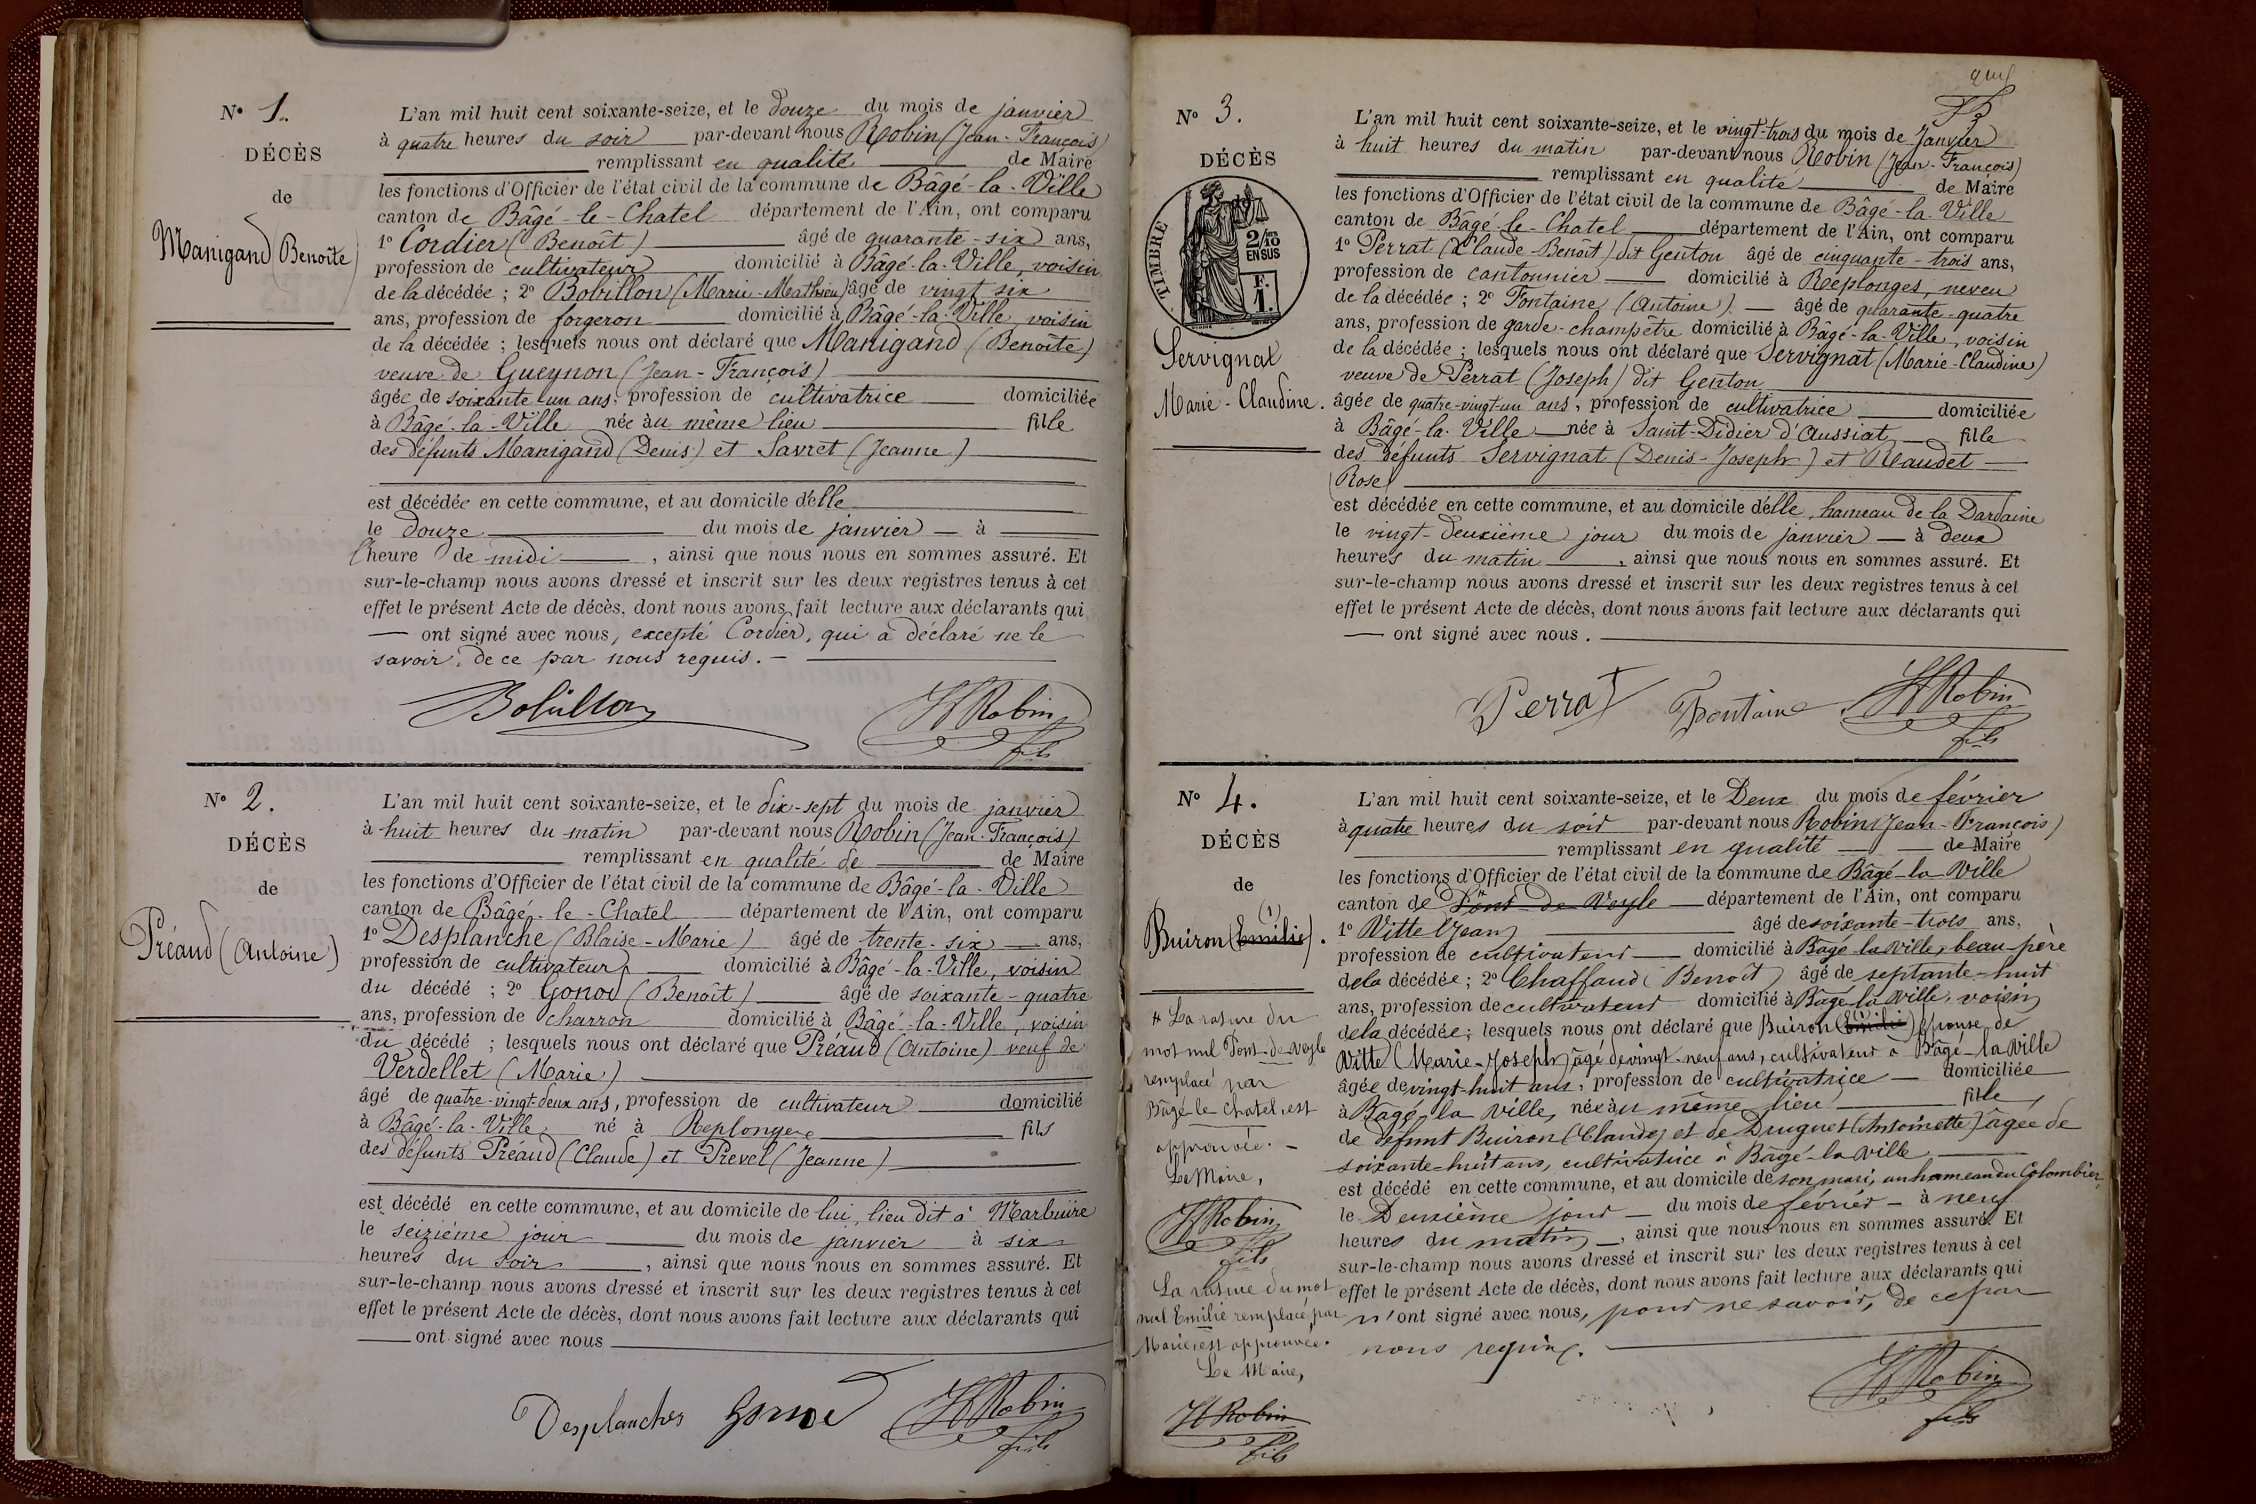 N° 1.
DÉCÈS
de
Manigand (Benoîte)
L'an mil huit cent soixante-seize, et le douze du mois de janvier
à quatre heures du soir par-devant nous Robin (Jean-François)
remplissant en qualité de Maire
les fonctions d'Officier de l'état civil de la commune de Bâgé-la-Ville
canton de Bâgé-le-Chatel département de l'Ain, ont comparu
1° Cordier (Benoît) âgé de quarante-six ans,
profession de cultivateur domicilié à Bâgé-la-Ville, voisin
de la décédée ; 2° Bobillon (Marie-Mathieu) âgé de vingt six
ans, profession de forgeron domicilié à Bâgé-la-Ville, voisin
de la décédée ; lesquels nous ont déclaré que Manigand (Benoîte)
veuve de Gueynon (Jean-François)
âgée de soixante-un ans, profession de cultivatrice domiciliée
à Bâgé-la-Ville née au même lieu fille
des défunts Manigand (Denis) et Savret (Jeanne)
est décédée en cette commune, et au domicile d'elle
le douze du mois de janvier — à
l'heure de midi, ainsi que nous nous en sommes assuré. Et
sur-le-champ nous avons dressé et inscrit sur les deux registres tenus à cet
effet le présent Acte de décès, dont nous avons fait lecture aux déclarants qui
— ont signé avec nous, excepté Cordier, qui a déclaré ne le
savoir, de ce par nous requis. —
Bobillon
Robin
fils
N° 2.
DÉCÈS
de
Préaud (Antoine)
L'an mil huit cent soixante-seize, et le dix-sept du mois de janvier
à huit heures du matin par-devant nous Robin (Jean-François)
remplissant en qualité de de Maire
les fonctions d'Officier de l'état civil de la commune de Bâgé-la-Ville
canton de Bâgé-le-Chatel département de l'Ain, ont comparu
1° Desplanche (Blaise-Marie) âgé de trente-six ans,
profession de cultivateur domicilié à Bâgé-la-Ville, voisin
du décédé ; 2° Gonod (Benoît) âgé de soixante-quatre
ans, profession de charron domicilié à Bâgé-la-Ville, voisin
du décédé ; lesquels nous ont déclaré que Préaud (Antoine) veuf de
Verdellet (Marie)
âgé de quatre-vingt-deux ans, profession de cultivateur domicilié
à Bâgé-la-Ville, né à Replonges fils
des défunts Préaud (Claude) et Prevel (Jeanne)
est décédé en cette commune, et au domicile de lui, lieu dit à Marbuire
le seizième jour du mois de janvier à six
heures du soir, ainsi que nous nous en sommes assuré. Et
sur-le-champ nous avons dressé et inscrit sur les deux registres tenus à cet
effet le présent Acte de décès, dont nous avons fait lecture aux déclarants qui
— ont signé avec nous
Desplanches Gonod Robin
fils
N° 3.
DÉCÈS
TIMBRE
2/10 EN SUS
F. 1.
Servignat
Marie-Claudine.
L'an mil huit cent soixante-seize, et le vingt-trois du mois de Janvier
à huit heures du matin par-devant nous Robin (Jean-François)
remplissant en qualité de Maire
les fonctions d'Officier de l'état civil de la commune de Bâgé-la-Ville
canton de Bâgé-le-Chatel département de l'Ain, ont comparu
1° Perrat (Claude-Benoît) dit Genton âgé de cinquante-trois ans,
profession de cantonnier domicilié à Replonges, neveu
de la décédée ; 2° Fontaine (Antoine) — âgé de quarante-quatre
ans, profession de garde-champêtre domicilié à Bâgé-la-Ville, voisin
de la décédée ; lesquels nous ont déclaré que Servignat (Marie-Claudine)
veuve de Perrat (Joseph) dit Genton
âgée de quatre-vingt-un ans, profession de cultivatrice domiciliée
à Bâgé-la-Ville née à Saint-Didier d'Aussiat fille
des défunts Servignat (Denis-Joseph) et Naudet —
(Rose)
est décédée en cette commune, et au domicile d'elle, hameau de la Dardaine
le vingt-deuxième jour du mois de janvier — à deux
heures du matin, ainsi que nous nous en sommes assuré. Et
sur-le-champ nous avons dressé et inscrit sur les deux registres tenus à cet
effet le présent Acte de décès, dont nous avons fait lecture aux déclarants qui
— ont signé avec nous.
Perrat Fontaine Robin
fils
N° 4.
DÉCÈS
de
(1)
Buiron (Emilie).
L'an mil huit cent soixante-seize, et le Deux du mois de février
à quatre heures du soir par-devant nous Robin (Jean-François)
remplissant en qualité — de Maire
les fonctions d'Officier de l'état civil de la commune de Bâgé-la-Ville
canton de Pont-de-Veyle département de l'Ain, ont comparu
1° Vitte (Jean) âgé de soixante-trois ans,
profession de cultivateur domicilié à Bâgé-la-Ville, beau-père
de la décédée ; 2° Chaffaud (Benoît) âgé de septante-huit
ans, profession de cultivateur domicilié à Bâgé-la-Ville, voisin
de la décédée ; lesquels nous ont déclaré que Buiron (Emilie) (1) épouse de
Vitte (Marie-Joseph) âgé de vingt-neuf ans, cultivateur à Bâgé-la-Ville
âgée de vingt-huit ans, profession de cultivatrice — domiciliée
à Bâgé-la-Ville, née au même lieu fille
de défunt Buiron (Claude) et de Druguet (Antoinette) âgée de
soixante-huit ans, cultivatrice à Bâgé-la-Ville
est décédé en cette commune, et au domicile de son mari, au hameau du Colombier,
le Deuxième jour — du mois de février — à neuf
heures du matin, ainsi que nous nous en sommes assuré. Et
sur-le-champ nous avons dressé et inscrit sur les deux registres tenus à cet
effet le présent Acte de décès, dont nous avons fait lecture aux déclarants qui
n'ont signé avec nous, pour ne savoir, de ce par
nous requis.
Robin
fils
La rature du
mot nul Pont-de-Veyle
remplacé par
Bâgé-le-Chatel est
approuvée. —
Le Maire,
Robin
fils
La rature du mot
nul Emilie remplacé par
Marie, est approuvée.
Le Maire,
Robin
fils